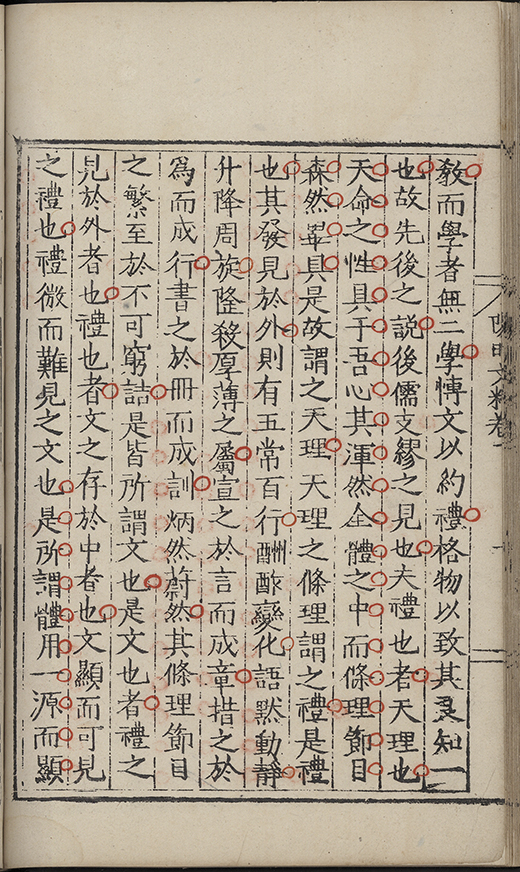 教而學者無二學博文以約禮格物以致其良知一
也故先後之説後儒支繆之見也夫禮也者天理也
天命之性具于吾心其渾然全體之中而條理節目
森然畢具是故謂之天理天理之條理謂之禮是禮
也其發見於外則有五常百行酬酢變化語默動靜
升降周旋隆殺厚薄之屬宣之於言而成章措之於
爲而成行書之於冊而成訓炳然蔚然其條理節目
之繁至於不可窮詰是皆所謂文也是文也者禮之
見於外者也禮也者文之存於中者也文顯而可見
之禮也禮微而難見之文也是所謂體用一源而顯
陽明文粹卷